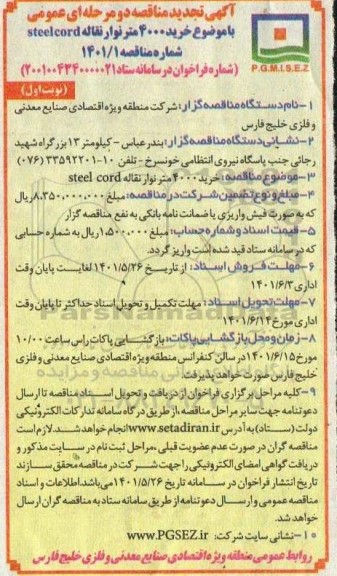 آگهی تجدید مناقصه دو مرحله ای عمومی
با موضوع خرید ۴۰۰۰ متر نوار نقاله steelcord
شماره مناقصه ۱۴۰۱/۱
(شماره فراخوان در سامانه ستاد ۲۰۰۱۰۰۴۳۴۰۰۰۰۰۲۱)
P.G.M.I.S.E.Z
(نوبت اول)
۱- نام دستگاه مناقصه گزار: شرکت منطقه ویژه اقتصادی صنایع معدنی
و فلزی خلیج فارس
۲- نشانی دستگاه مناقصه گزار: بندرعباس - کیلومتر ۱۳ بزرگراه شهید
رجائی جنب پاسگاه نیروی انتظامی خونسرخ - تلفن ۱۰-۳۳۵۹۲۲۰۱ (۰۷۶)
۳- موضوع مناقصه: خرید ۴۰۰۰ متر نوار نقاله steel cord
۴- مبلغ و نوع تضمین شرکت در مناقصه: مبلغ ۸،۳۵۰،۰۰۰،۰۰۰ ریال
که به صورت فیش واریزی یا ضمانت نامه بانکی به نفع مناقصه گزار
۵- قیمت اسناد و شماره حساب: مبلغ ۱،۵۰۰،۰۰۰ ریال به شماره حسابی
که در سامانه ستاد قید شده است واریز گردد.
۶- مهلت فروش اسناد: از تاریخ ۱۴۰۱/۵/۲۶ لغایت پایان وقت
اداری ۱۴۰۱/۶/۳
۷- مهلت تحویل اسناد: مهلت تکمیل و تحویل اسناد حداکثر تا پایان وقت
اداری مورخ ۱۴۰۱/۶/۱۴
۸- زمان و محل بازگشایی پاکات: بازگشایی پاکات راس ساعت ۱۰/۰۰
مورخ ۱۴۰۱/۶/۱۵ در سالن کنفرانس منطقه ویژه اقتصادی صنایع معدنی و فلزی
خلیج فارس صورت خواهد پذیرفت.
۹- کلیه مراحل برگزاری فراخوان از دریافت و تحویل اسناد مناقصه تا ارسال
دعوتنامه جهت سایر مراحل مناقصه، از طریق درگاه سامانه تدارکات الکترونیکی
دولت (ستاد) به آدرس www.setadiran.ir انجام خواهد شد. لازم است
مناقصه گران در صورت عدم عضویت قبلی، مراحل ثبت نام در سایت مذکور و
دریافت گواهی امضای الکترونیکی را جهت شرکت در مناقصه محقق سازند
تاریخ انتشار فراخوان در سامانه تاریخ ۱۴۰۱/۵/۲۶ می باشد. اطلاعات و اسناد
مناقصه عمومی و ارسال دعوتنامه از طریق سامانه ستاد به مناقصه گران ارسال
خواهد شد.
۱۰- نشانی سایت شرکت: www.PGSEZ.ir
روابط عمومی منطقه ویژه اقتصادی صنایع معدنی و فلزی خلیج فارس